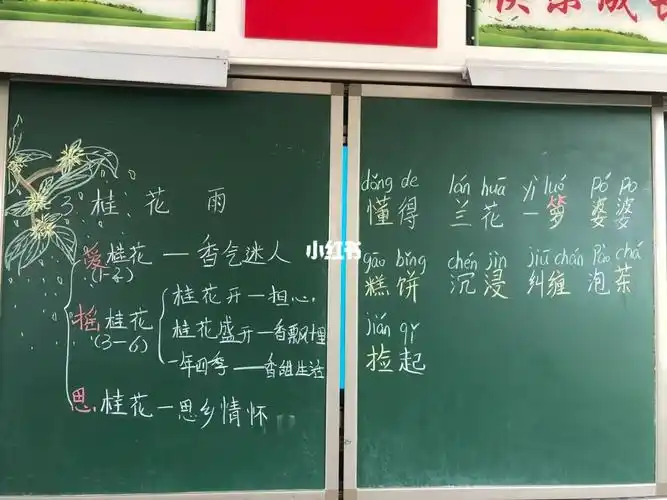 快乐成长
3 桂花雨
爱桂花—香气迷人
(1-2)
桂花开—担心
摇桂花
(3-6)
桂花盛开—香飘十里
一年四季—香甜生活
思桂花—思乡情怀
小红书
dǒng de lán huā yì luó pó po
懂得 兰花 一箩 婆婆
gāo bǐng chén jìn jiū chán pào chá
糕饼 沉浸 纠缠 泡茶
jiǎn qǐ
捡起